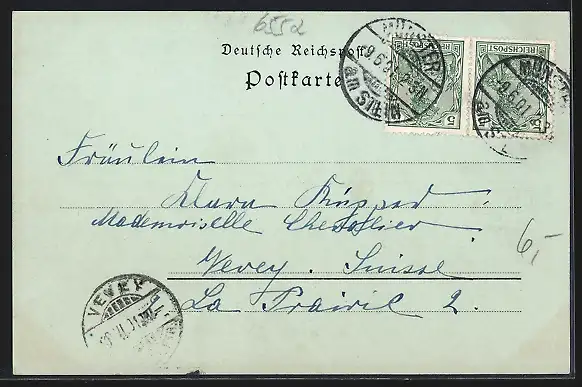 655a
Deutsche Reichspost
Postkarte
REICHSPOST
REICHSPOST
5
5
MÜNSTER
MÜNSTER
9.6.01
Fräulein
Klara Küppod
Mademoiselle Chevallier
Vevey. Suisse
La Prairie 2.
6,-
VEVEY